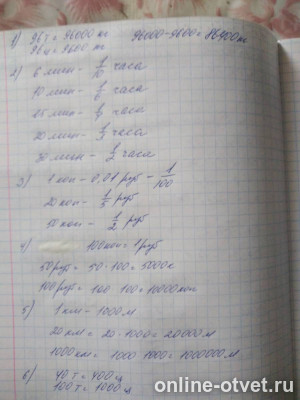 1) 96т = 96000 кг 96000-9600= 86400 кг
96ц = 9600 кг
2) 6 мин - 1/10 часа
10 мин - 1/6 часа
15 мин - 1/4 часа
20 мин - 1/3 часа
30 мин - 1/2 часа
3) 1 коп - 0,01 руб - 1/100
20 коп - 1/5 руб
50 коп - 1/2 руб
4) 100 коп = 1 руб
50 руб = 50 · 100 = 5000 к
100 руб = 100 · 100 = 10000 коп
5) 1 км - 1000 м
20 км = 20 · 1000 = 20000 м
1000 км = 1000 · 1000 = 1000000 м
6) 40 т = 400 ц
100 т = 1000 ц
online-otvet.ru